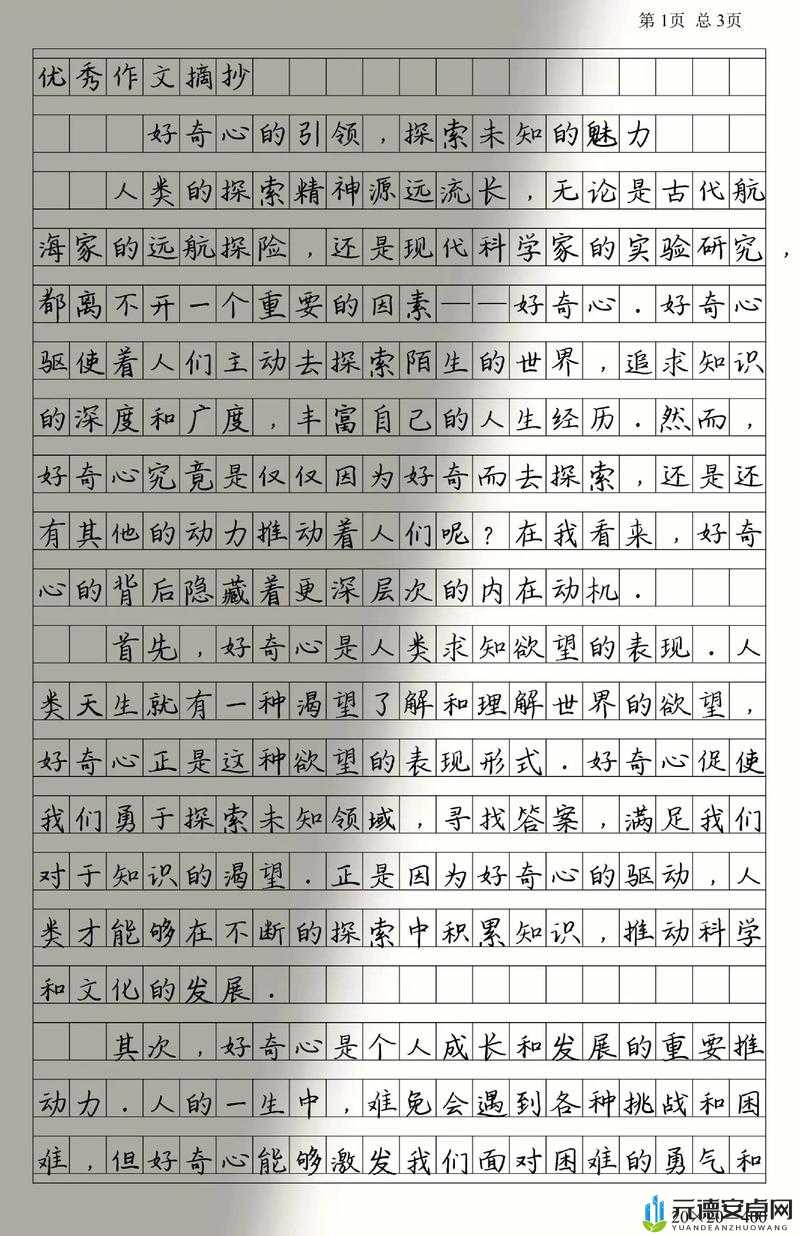 第1页 总3页
优秀作文摘抄
好奇心的引领，探索未知的魅力
人类的探索精神源远流长，无论是古代航
海家的远航探险，还是现代科学家的实验研究，
都离不开一个重要的因素——好奇心．好奇心
驱使着人们主动去探索陌生的世界，追求知识
的深度和广度，丰富自己的人生经历．然而，
好奇心究竟是仅仅因为好奇而去探索，还是还
有其他的动力推动着人们呢？在我看来，好奇
心的背后隐藏着更深层次的内在动机．
首先，好奇心是人类求知欲望的表现．人
类天生就有一种渴望了解和理解世界的欲望，
好奇心正是这种欲望的表现形式．好奇心促使
我们勇于探索未知领域，寻找答案，满足我们
对于知识的渴望．正是因为好奇心的驱动，人
类才能够在不断的探索中积累知识，推动科学
和文化的发展．
其次，好奇心是个人成长和发展的重要推
动力．人的一生中，难免会遇到各种挑战和困
难，但好奇心能够激发我们面对困难的勇气和
元德安卓网
YUANDEANZHUOWANG
20×20=400